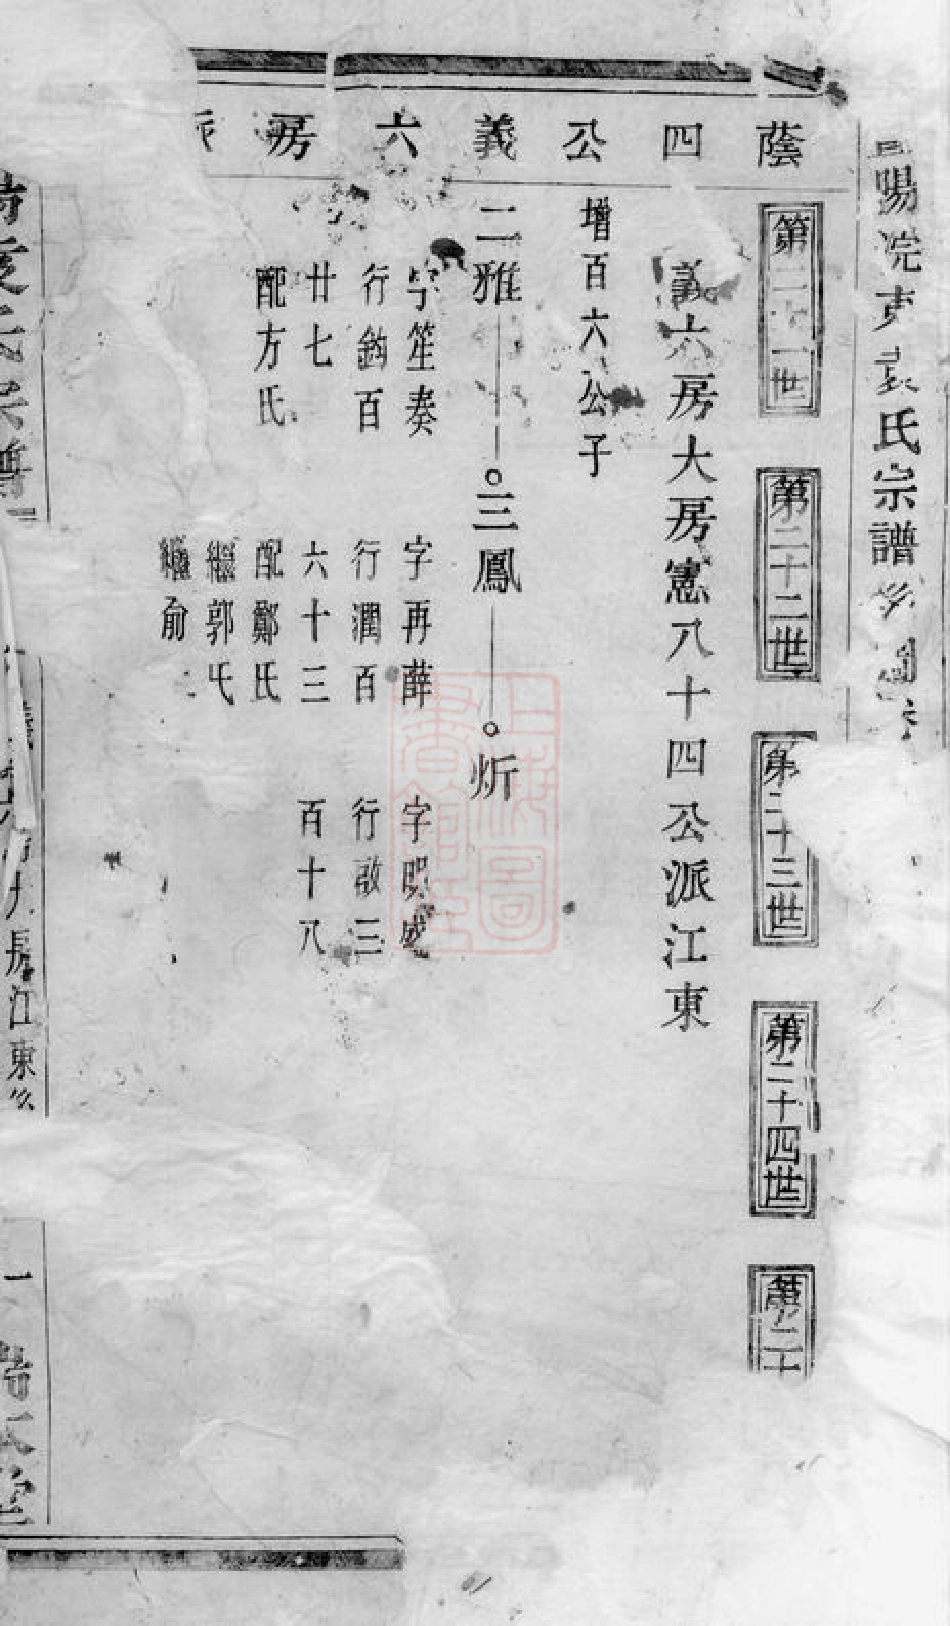 陽浣東袁氏宗譜
蔭四公義六房派
第二十一世
第二十二世
第二十三世
第二十四世
第二十
義六房大房憲八十四公派江東
增百六公子
二雅
三鳳
炘
字笙奏
行鈞百
廿七
配方氏
字再薛
行潤百
六十三
配鄭氏
繼郭氏
繼俞
字
行啟三
百十八
長江東